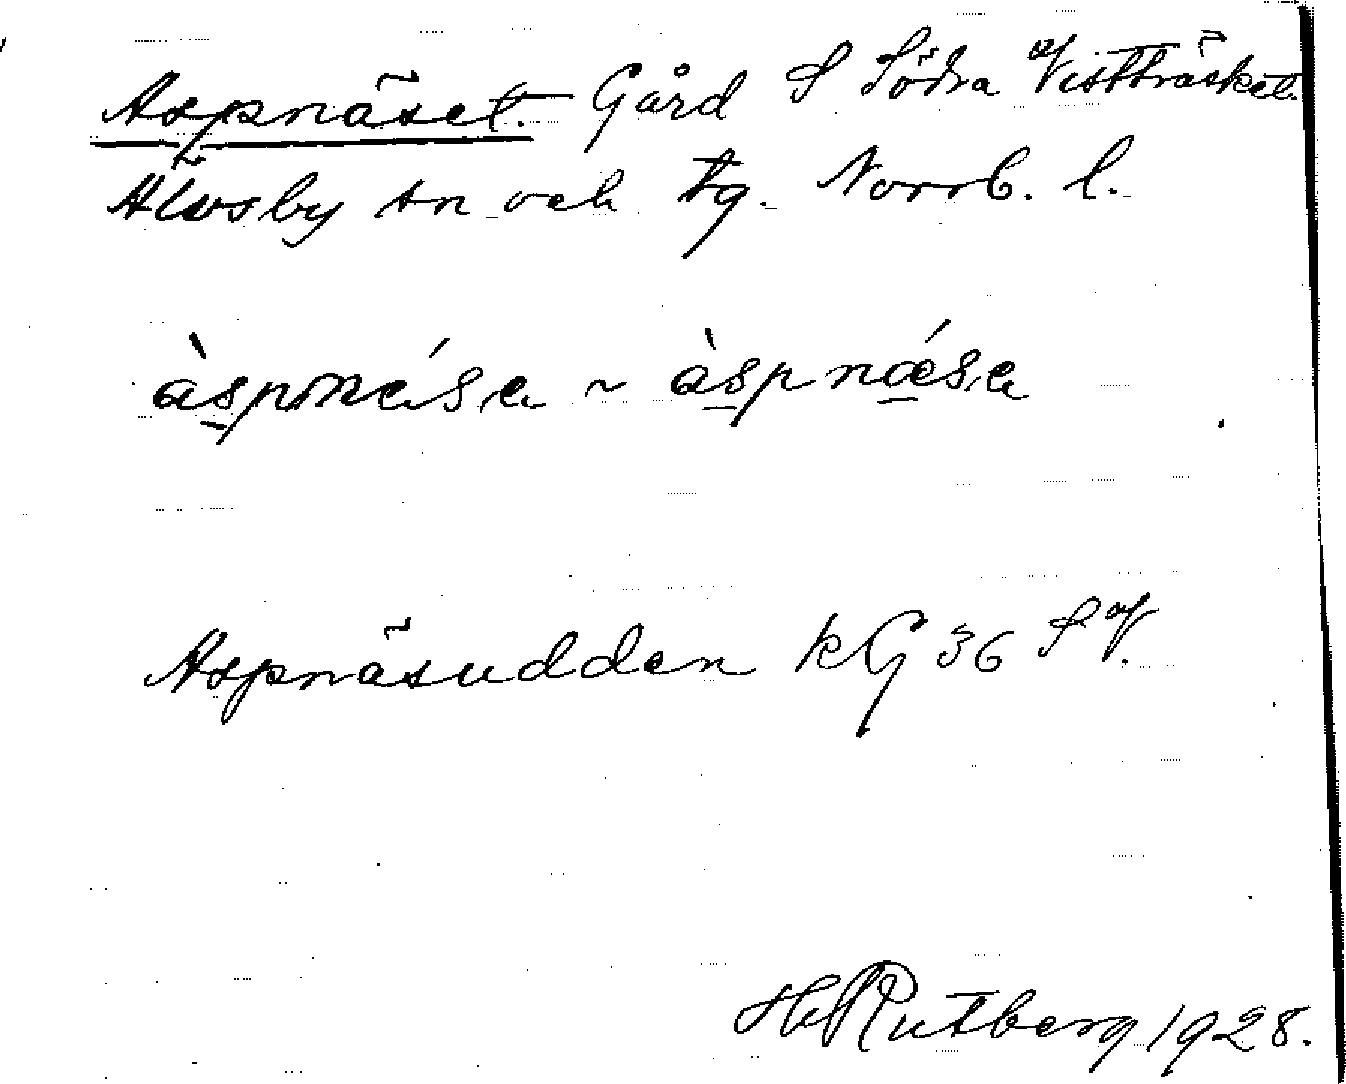 Aspnäset. Gård S Södra Vistträsket.
Älvsby sn och tg. Norrb. l.
àspnésa ~ àspnǽsa
Aspnäsudden kG 36 SV.
H Rutberg 1928.